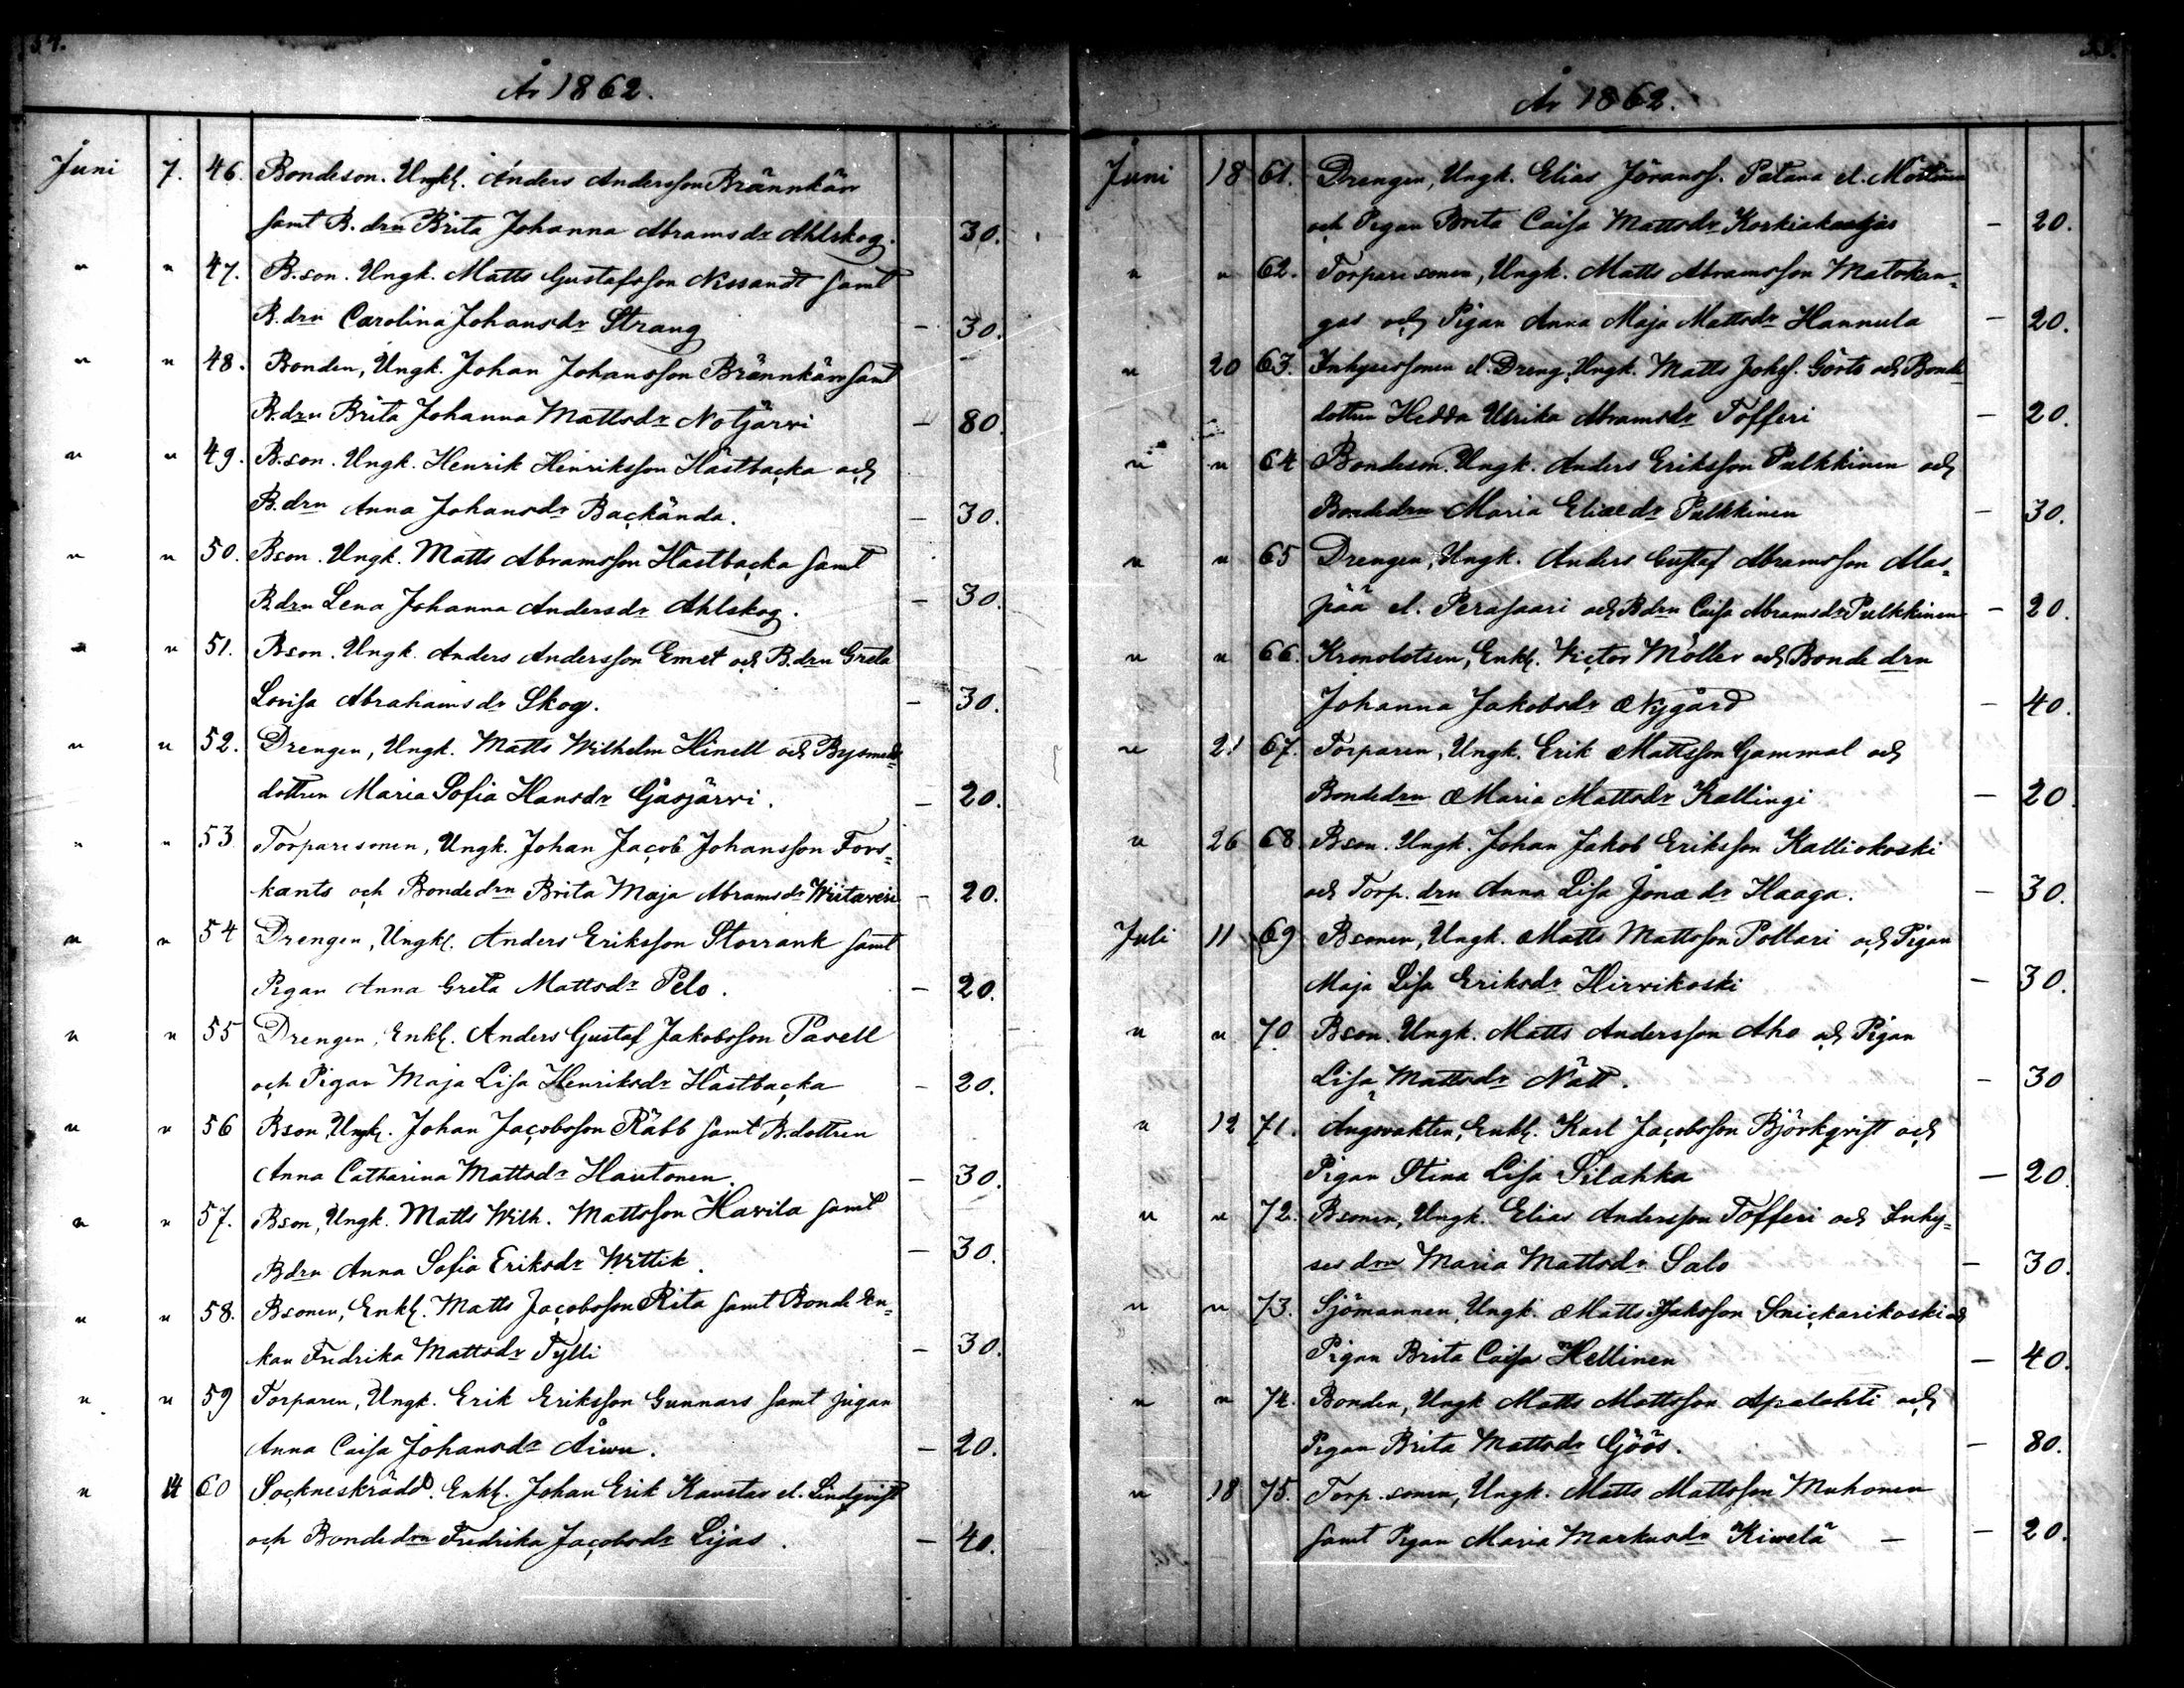 54.
År 1862.
Juni 7. 46. Bondeson. Ungk. Anders Andersson Brännkärr
samt B.drn Brita Johanna Abramsdr Ahlskog. 30.
" " 47. B.son. Ungk. Matts Gustafsson Nissandt samt
B.drn Carolina Johansdr Strang — 30.
" " 48. Bonden, Ungk. Johan Johansson Brännkärr samt
B.drn Brita Johanna Mattsdr Notjärvi — 80.
" " 49. B.son. Ungk. Henrik Henriksson Hästbacka och
B.drn Anna Johansdr Backända. — 30.
" " 50. Bson. Ungk. Matts Abramsson Hästbacka samt
B.drn Lena Johanna Andersdr Ahlskog. — 30.
" " 51. Bson. Ungk. Anders Andersson Emet och B.drn Greta
Lovisa Abrahamsdr Skog. — 30.
" " 52. Drengen, Ungk. Matts Wilhelm Hinell och Bysmeds
dottren Maria Sofia Hansdr Gåsjärvi. — 20.
" " 53 Torparesonen, Ungk. Johan Jacob Johansson Fors-
kants och Bondedrn Brita Maja Abramsdr Wiitavesi — 20.
" " 54 Drengen, Ungk. Anders Eriksson Storrank samt
Pigan Anna Greta Mattsdr Pelo. — 20.
" " 55 Drengen, Enkl. Anders Gustaf Jakobsson Parell
och Pigan Maja Lisa Henriksdr Hästbacka — 20.
" " 56 Bson, Ungk. Johan Jacobsson Räbb samt B.dottren
Anna Catharina Mattsdr Hautonen. — 30.
" " 57. Bson, Ungk. Matts Wilh. Mattsson Havila samt
Bdrn Anna Sofia Eriksdr Wittik. — 30.
" " 58. Bsonen, Enkl. Matts Jacobsson Rita samt Bonde En-
kan Fredrika Mattsdr Tylli — 30.
" " 59 Torparen, Ungk. Erik Eriksson Gunnars samt pigan
Anna Caisa Johansdr Åiwu. — 20.
" 14 60 Sockneskrädd. Enkl. Johan Erik Kanstas el. Lindqvist
och Bondedrn Fredrika Jacobsdr Lijas. — 40.
År 1862.
Juni 18 61. Drengen, Ungk. Elias Jöranss. Patana el. Mörtinen
och Pigan Brita Caisa Mattsdr Korkiakangas — 20.
" " 62. Torparesonen, Ungk. Matts Abramsson Matokan-
gas och Pigan Anna Maja Mattsdr Hannula — 20.
" 20 63. Inhysessonen el. Dreng, Ungk. Matts Johss. Görts och Bonde
dottren Hedda Ulrika Abramsdr Tofferi — 20.
" " 64 Bondeson. Ungk. Anders Eriksson Pulkkinen och
Bondedrn Maria Eliaedr Pulkkinen — 30.
" " 65 Drengen, Ungk. Anders Gustaf Abramsson Alas-
pää el. Perasaari och Bdrn Caisa Abramsdr Pulkkinen — 20.
" " 66. Kronolotsen, Enkl. Victor Möller och Bonde drn
Johanna Jakobsdr Nygård — 40.
" 21 67. Torparen, Ungk. Erik Mattsson Gammal och
Bondedrn Maria Mattsdr Kallingi — 20
" 26 68 Bson. Ungk. Johan Jakob Eriksson Kalliokoski
och Torp. drn Anna Lisa Jonædr Haaga. — 30.
Juli 11 69 Bsonen, Ungk. Matts Mattsson Pollari och Pigan
Maja Lisa Eriksdr Hirvikoski — 30.
" " 70. Bson. Ungk. Matts Andersson Aho och Pigan
Lisa Mattsdr Nätt. — 30
" 12 71. Ångvakten, Enkl. Karl Jacobsson Björkqvist och
Pigan Stina Lisa Silahka — 20.
" " 72. Bsonen, Ungk. Elias Andersson Tofferi och Inhy-
ses drn Maria Mattsdr Salo — 30.
" " 73. Sjömannen, Ungk. Matts Isaksson Snickarikoski och
Pigan Brita Caisa Hellinen — 40.
" " 74. Bonden, Ungk Matts Mattsson Apalahti och
Pigan Brita Mattsdr Göös. — 80.
" 18 75. Torp.sonen, Ungk. Matts Mattsson Muhonen
samt Pigan Maria Markusdr Kiwelä — — 20.